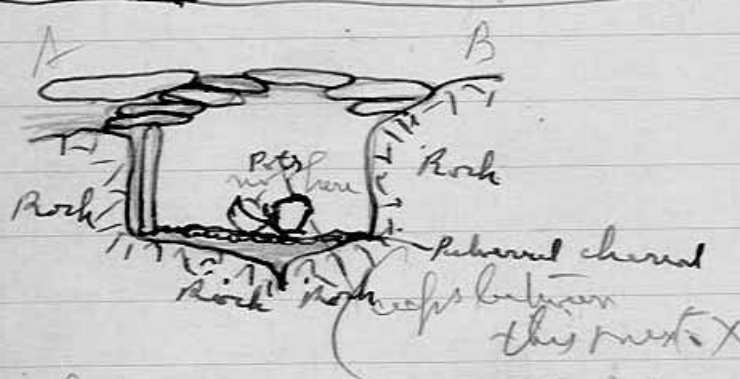 A
B
Pots
not here
Rock
Rock
Pulverised charcoal
Rock Rock
between
this